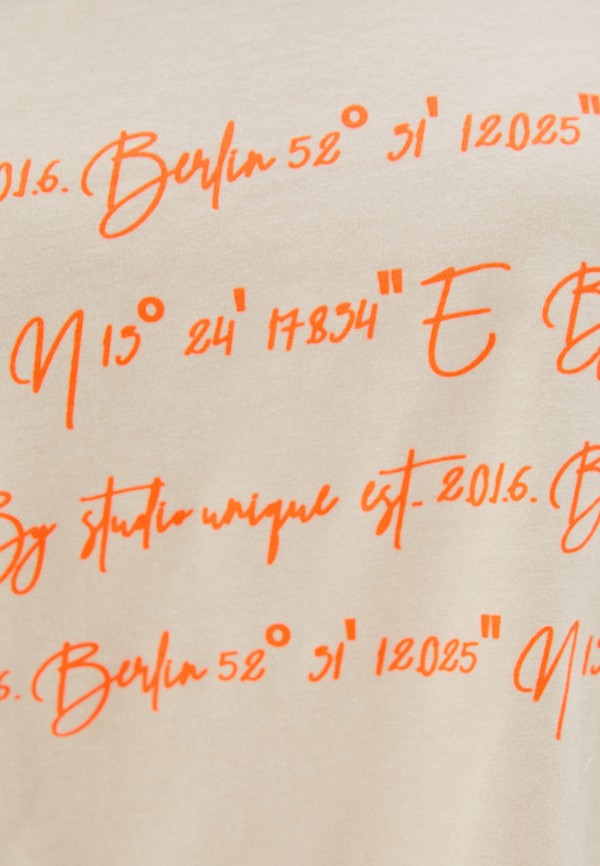 01.6. Berlin 52° 31' 12.025"
N 13° 24' 17.834" E B
By studio unique est. 2.01.6. B
6. Berlin 52° 31' 12.025" N 13